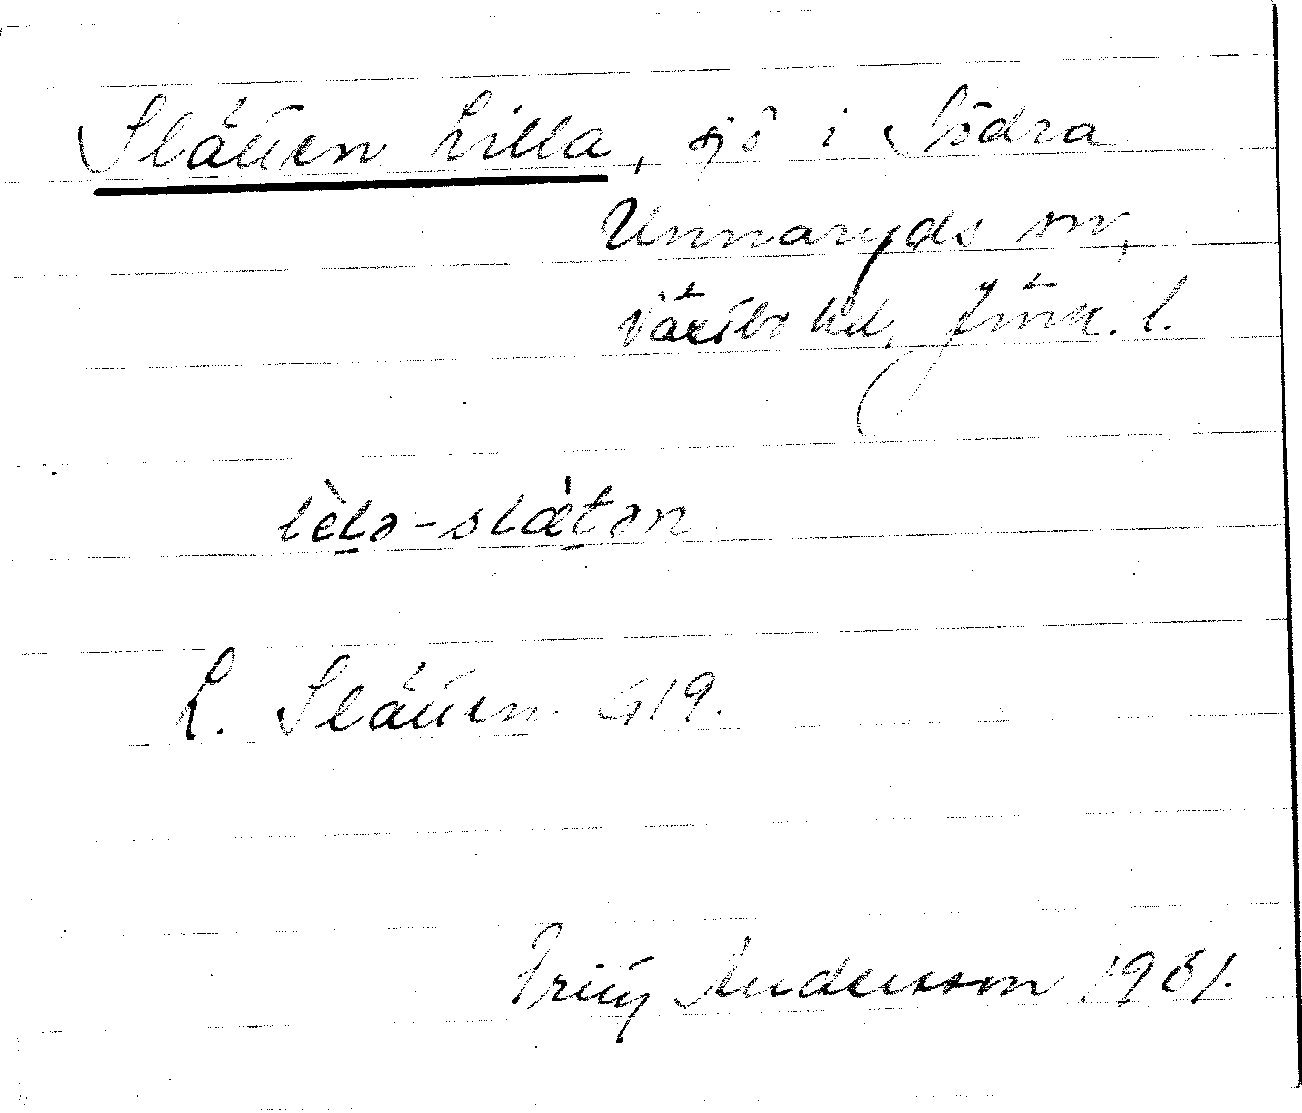 Slätten Lilla, sjö i Södra
Unnaryds sn,
Västbo hd, Jönk. l.
lèlə-slætən
L. Slätten G19.
Andersson 1931.